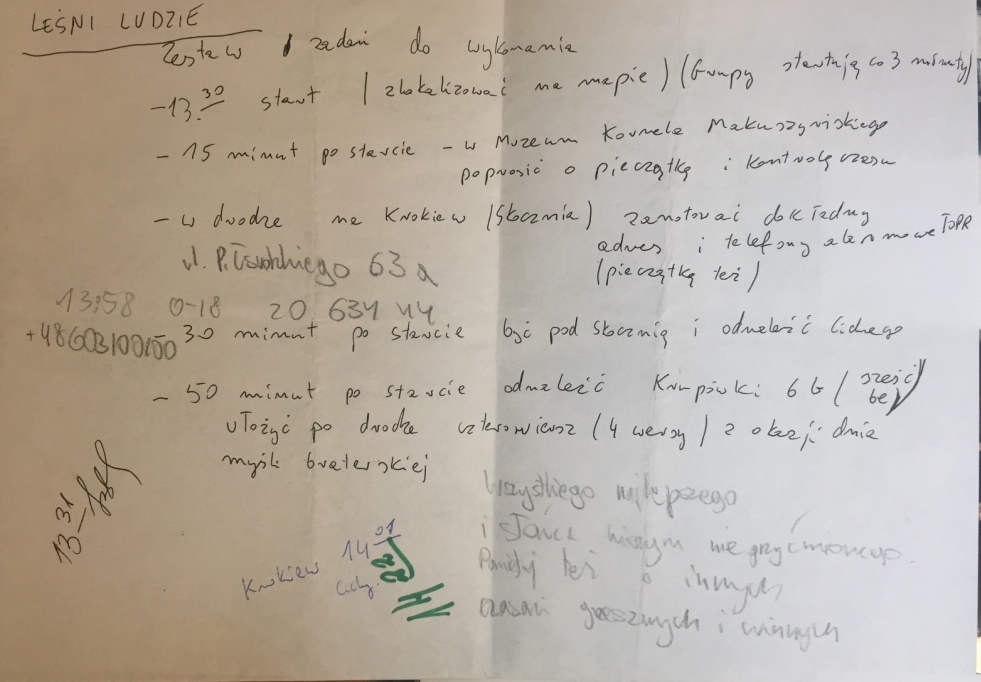 LEŚNI LUDZIE
Zestaw zadań do wykonania
- 13.30 start (zlokalizować na mapie) (Grupy startują co 3 minuty)
- 15 minut po starcie - w Muzeum Kornela Makuszyńskiego
poprosić o pieczątkę i kontrolę czasu
- w drodze na Krokiew (Skocznia) zanotować dokładny
adres i telefony alarmowe TOPR
(pieczątkę też)
ul. Piłsudskiego 63a
13:58 0-18 20 634 44
+48603100100
- 30 minut po starcie być pod skocznią i odnaleźć Cichego
- 50 minut po starcie odnaleźć Krupówki 6 b (sześć
be)
ułożyć po drodze czterowiersz (4 wersy) z okazji dnia
myśli braterskiej
13 31
Wszystkiego najlepszego
i słońca niczym nie przyćmionego.
Pamiętaj też o innych
czasami grzesznych i winnych
Krokiew 14 01
Cichy
14 22